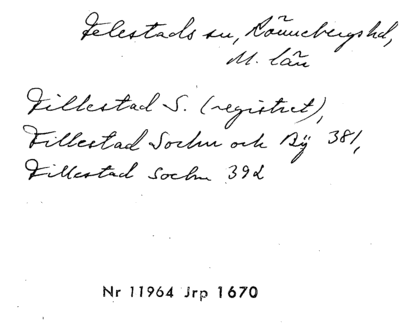 Felestads sn, Rönnebergs hd,
M. län
Fillestad S. (registret),
Fillestad Sochn och Bÿ 381,
Fillestad Sochn 392
Nr 11964 Jrp 1670